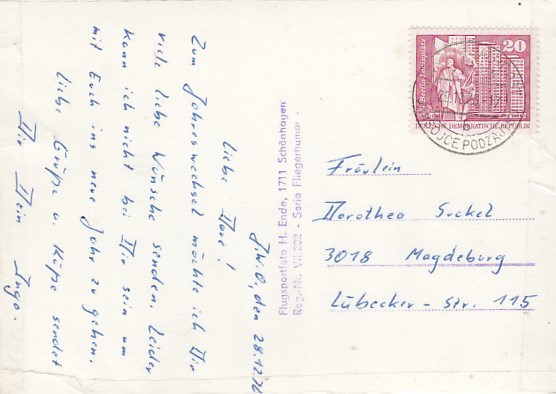 J.W.O, den 28.12.76
Liebe Dore!
Zum Jahreswechsel möchte ich Dir
viele liebe Wünsche senden. Leider
kann ich nicht bei Dir sein um
mit Euch ins neue Jahr zu gehen.
Liebe Grüße u. Küße sendet
Dir Dein Ingo.
Flugsportfoto H. Ende, 1711 Schönhagen
Reg.-Nr. VII 202 - Serie Fliegerhumor -
20
Berlin Leninplatz
DEUTSCHE DEMOKRATISCHE REPUBLIK
Fräulein
Dorothea Suckel
3018 Magdeburg
Lübecker-Str. 115